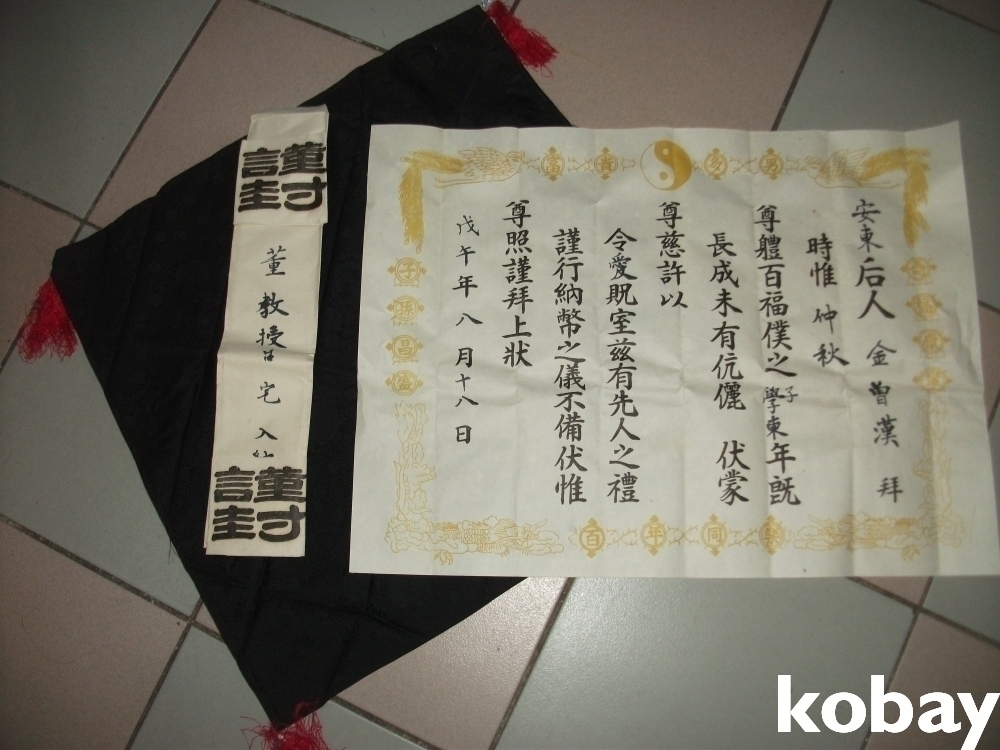 安東后人 金曾漢 拜
時惟 仲秋
尊體百福僕之子學東年旣
長成未有伉儷 伏蒙
尊慈許以
令愛貺室玆有先人之禮
謹行納幣之儀不備伏惟
尊照謹拜上狀
戊午年八月十八日
富貴 多男
子孫昌盛
百年同樂
謹封
董 敎授 宅 入
謹封
kobay